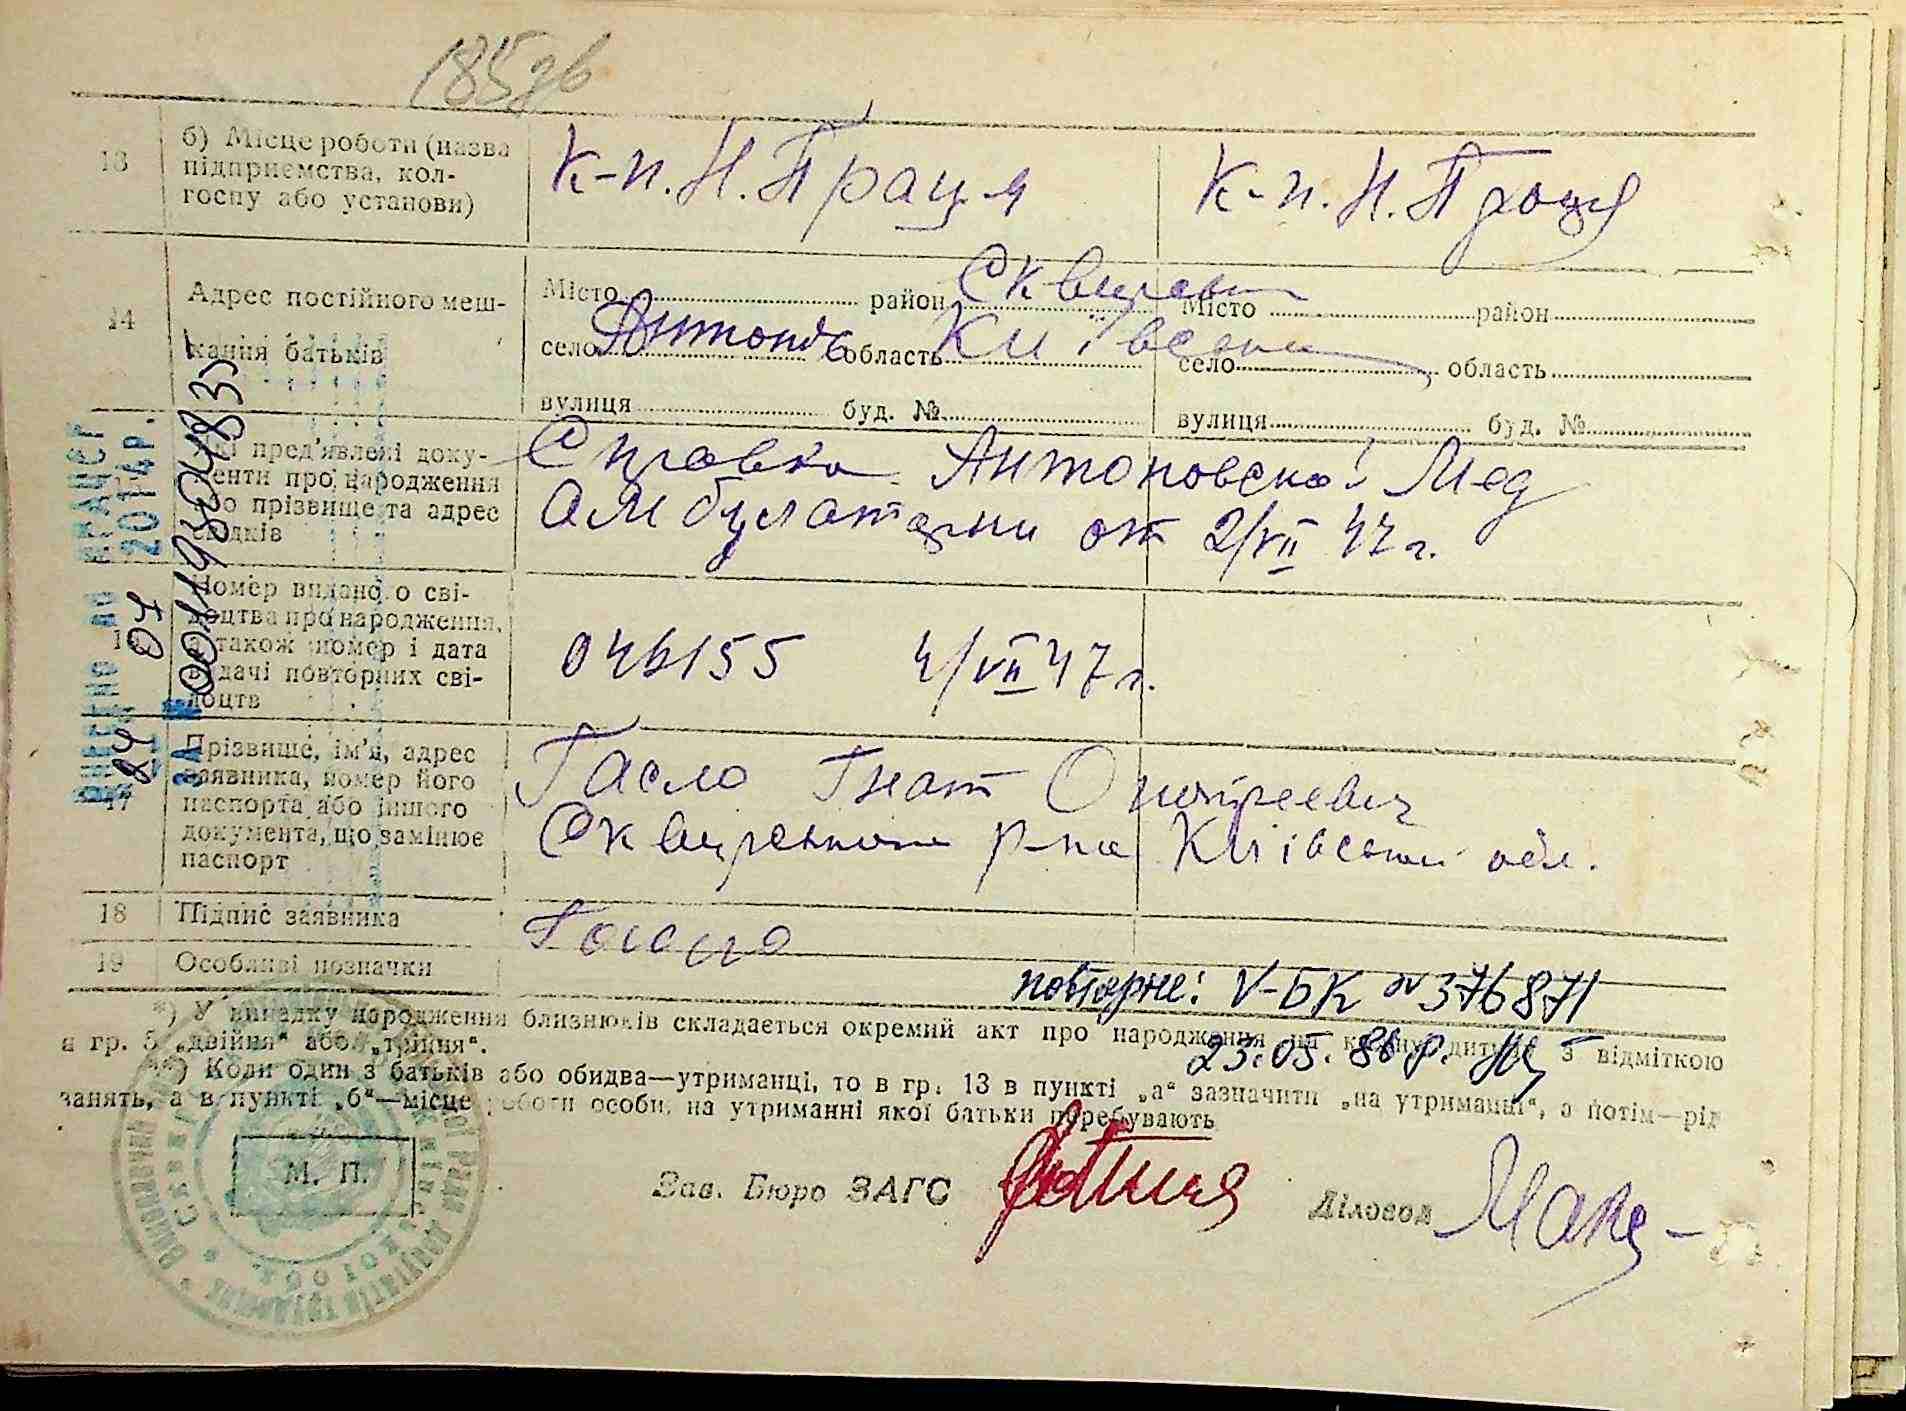 185 зв
13 б) Місце роботи (назва
підприємства, кол-
госпу або установи)
К-п. Н. Праця К-п. Н. Праця
14 Адрес постійного меш-
кання батьків
Місто район Сквирськ Місто район
село Антонів область Київська село область
вулиця буд. № вулиця буд. №
Які пред'явлені доку-
менти про народження
або прізвище та адрес
свідків
Справка Антоновской Мед
Амбулатории от 2/VII 47 г.
Номер виданого сві-
доцтва про народження,
а також номер і дата
видачі повторних сві-
доцтв
046155 4/VII 47 г.
17 Прізвище, ім'я, адрес
заявника, номер його
паспорта або іншого
документа, що замінює
паспорт
Гасло Гнат
Сквирського р-на Київской обл.
18 Підпис заявника
19 Особливі позначки
повторне: V-БК № 376871
23.05.86 р.
*) У випадку народження близнюків складається окремий акт про народження на кожну дитину з відміткою
в гр. 5 „двійня“ або „трійня“.
**) Коли один з батьків або обидва—утриманці, то в гр. 13 в пункті „а“ зазначити „на утриманні“, а потім—рід
занять, а в пункті „б“—місце роботи особи, на утриманні якої батьки перебувають
М. П.
Зав. Бюро ЗАГС Діловод
ВНЕСЕНО ДО ДРАЦСГ
24 07 2014р.
ЗА № 00119304835